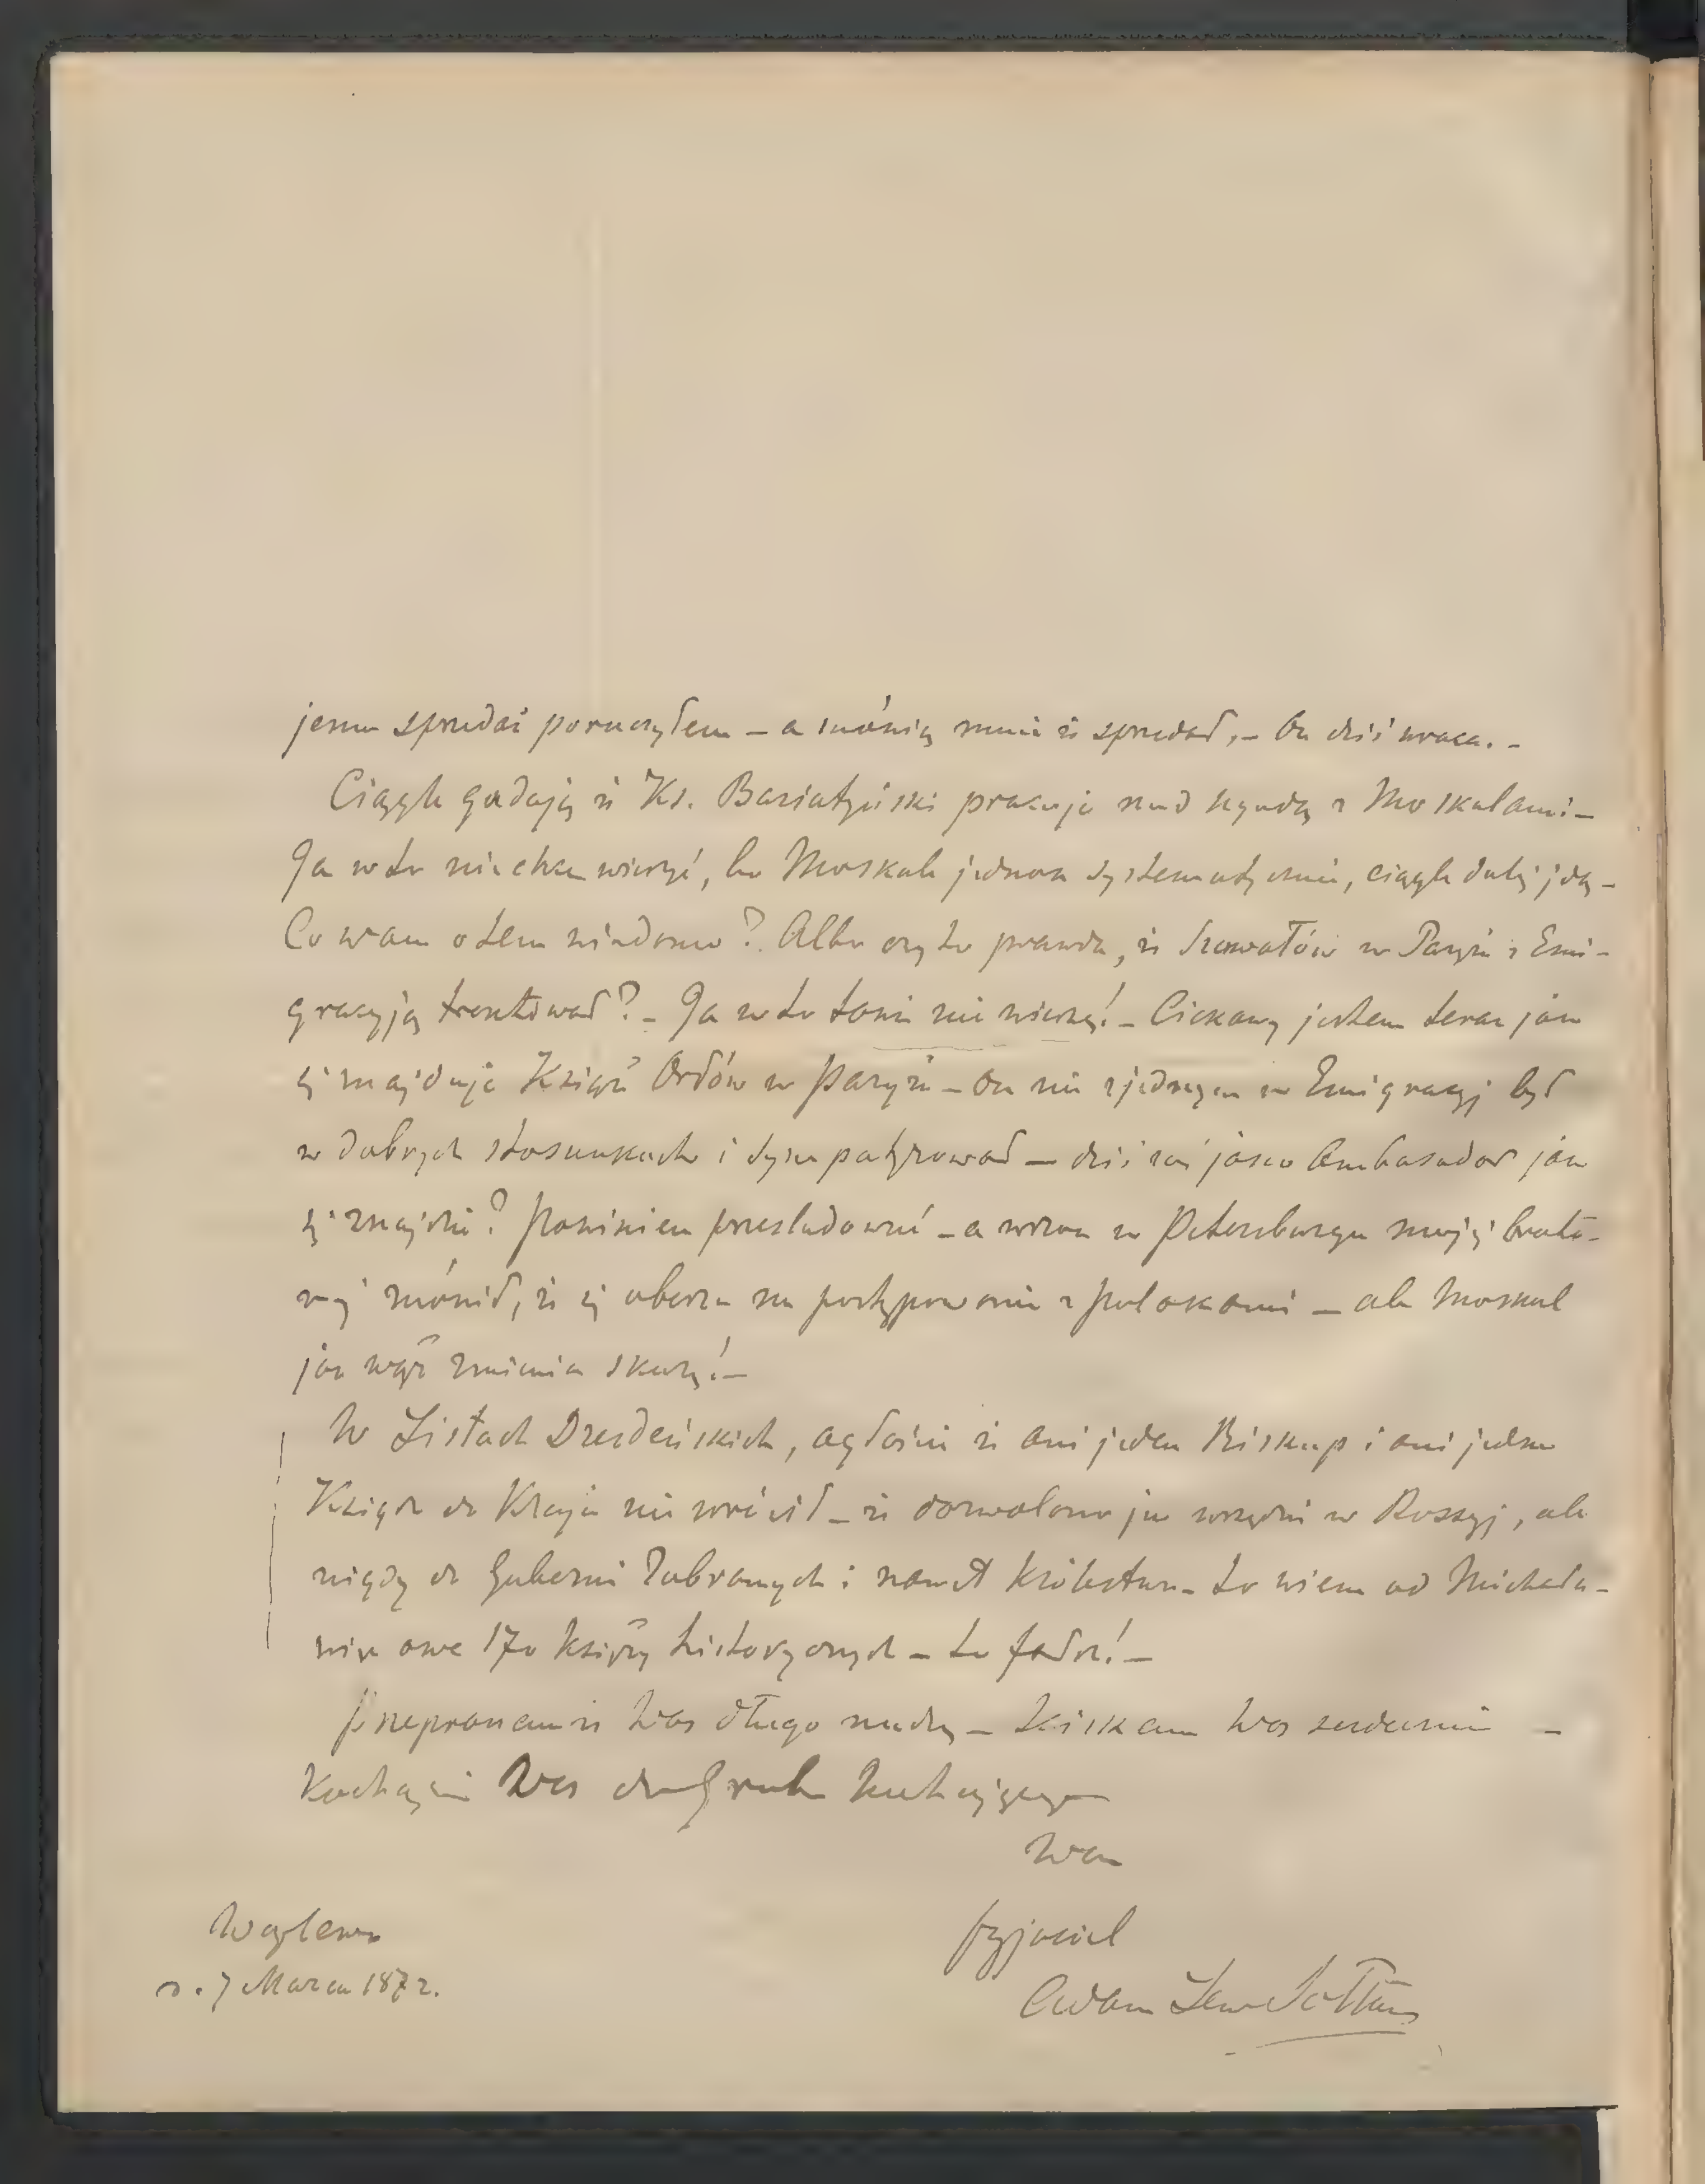 jemu sprzedać poruczyłem – a mówią mnie że sprzedał, – On dziś wraca. –
Ciągle gadają że Ks. Bariatyński pracuje nad ugodą z Moskalami –
Ja w to nie chcę wierzyć, bo Moskale jednak systematycznie, ciągle dalej idą –
Co wam o tem wiadomo? Albo czy to prawda, że Szuwałów w Paryżu z Emi-
gracyją traktował? – Ja w to tóż nie wierzę! – Ciekawy jestem teraz jak
się znajduje Książe Orłów w Paryżu – On nie z jednym w Emigracyj był
w dobrych stosunkach i sympatyzował – dziś zaś jako Ambasador jak
się znajdzie? Powinien prześladować – a wszak w Petersburgu mojej brato-
wej mówił, że się oburza na postępowanie z Polakami – ale Moskal
jak wąż zmienia skórę! –
W Listach Drezdeńskich, ogłosili że ani jeden Biskup i ani jeden
Ksiądz do Kraju nie wrócił – że dozwolono jem wszędzie w Rossyj, ale
nigdy do Guberni Zabranych i nawet Królestwa – to wiem od Michała –
więc owe 170 księży historycznych – to fałsz! –
Przepraszam że Was długo nudzę – Ściskam Was serdecznie –
Kochający Was do Grobu
Wasz
Przyjaciel
Adam Lew Sołtan
d. 7 Marca 1872.